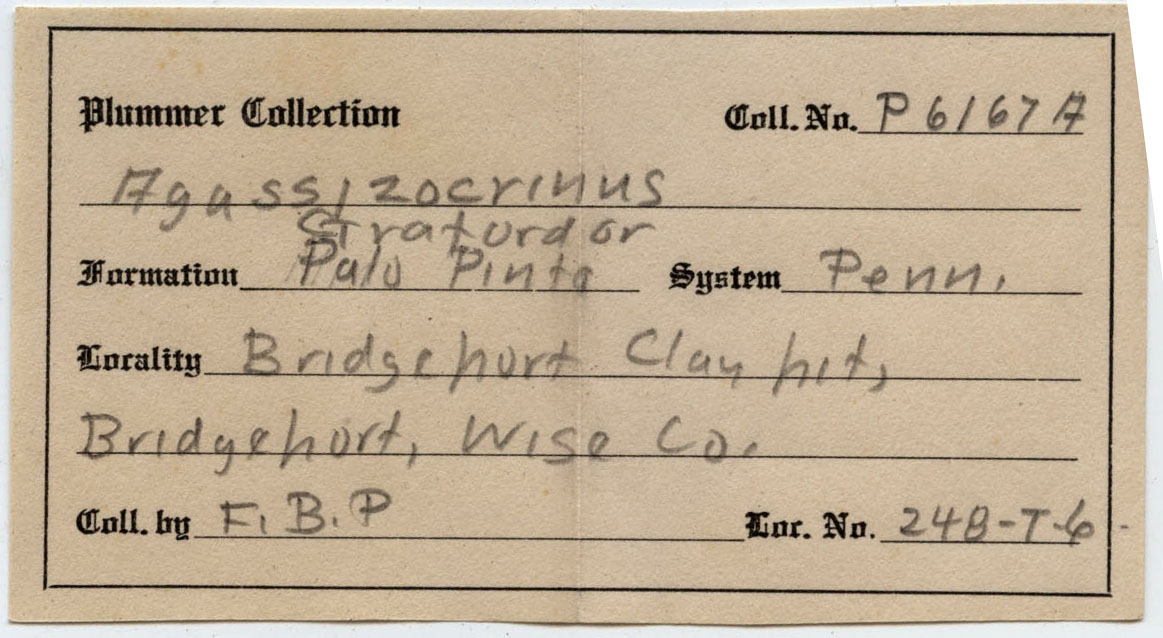 Plummer Collection Coll. No. P6167A
Agassizocrinus
Straford or
Formation Palo Pinto System Penn.
Locality Bridgeport Clay pit,
Bridgeport, Wise Co.
Coll. by F. B. P Loc. No. 248-T-6